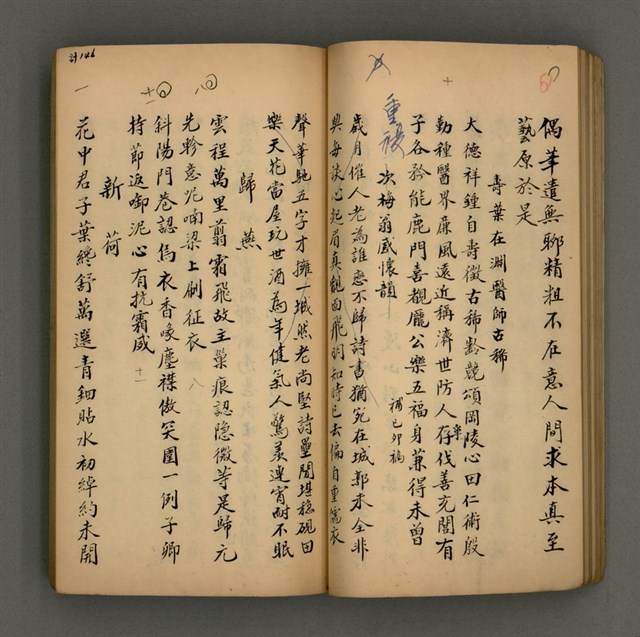 偶筆遣無聊精粗不在意人間求本真至
藝原於是
壽葉在淵醫師古稀
大德祥鍾自壽徵古稀齡競頌岡陵心田仁術殷
勤種醫界廉風遠近稱濟世防人存伐善充閭有
子各矜能鹿門喜覩龐公樂五福身兼得未曾
重複 次梅翁感懷韻 補己卯稿
歲月催人老為誰恋不歸詩書猶宛在城郭未全非
與每談心起眉真觀面飛羽知時已去偏自重儒衣
聲華馳五字才擁一城然老尚堅詩壘閒堪穩硯田
樂天花當屋玩世酒為年健氣人驚羨連宵耐不眠
歸燕
雲程萬里翦霜飛故主巢痕認隐微等是歸元
先軫意泥喃梁上刷征衣 八
斜陽門巷認烏衣香喙塵襟傲笑圍一例子卿
持節返啣泥心有抗霜威 十一
新荷
花中君子葉纔舒萬選青錢貼水初綽約未開
詩146
一